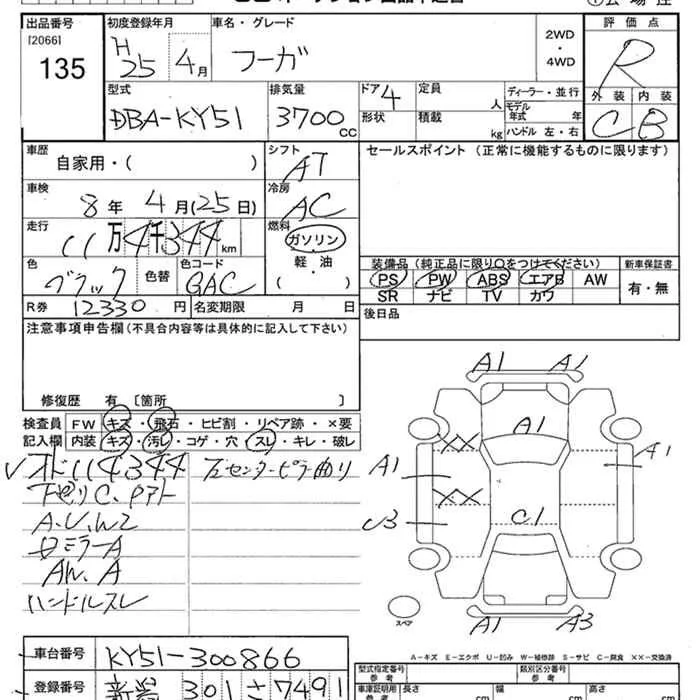 出品番号 初度登録年月 車名・グレード 評価点
[2066] H 25 4月 フーガ 2WD・4WD R
135
型式 排気量 ドア 4 定員 人 ディーラー・並行 外装 内装
DBA-KY51 3700 CC 形状 積載 kg モデル年式 年 ハンドル 左・右 C B
車歴 シフト セールスポイント (正常に機能するものに限ります)
自家用・( ) AT
車検 冷房
8年 4月(25日) AC
走行 燃料
11万4千344km ガソリン
軽・油
( )
色 色替 色コード
ブラック GAC
装備品 (純正品に限り○をつけてください) 新車保証書
PS PW ABS エアB AW 有・無
SR ナビ TV カワ
R券 12330円 名変期限 月 日
後日品
注意事項申告欄(不具合内容等は具体的に記入して下さい)
修復歴 有 [箇所 ]
検査員 FW キズ・飛石・ヒビ割・リペア跡・×要
記入欄 内装 キズ・汚レ・コゲ・穴・スレ・キレ・破レ
オド114344 左センターピラー曲り
下廻りC、Pアト
A.U、W2
ミラーA
AW、A
ハンドルスレ
A1 A1
A1
XX
A1 A1
XX
U3 C1
スペア
A1 A3
A-キズ E-エクボ U-凹み W-補修跡 S-サビ C-腐食 XX-交換済
車台番号 KY51-300866
登録番号 新潟 301 さ 7491
型式指定番号 参考 類別区分番号 参考
車庫証明用 参考 長さ cm 幅 cm 高さ cm